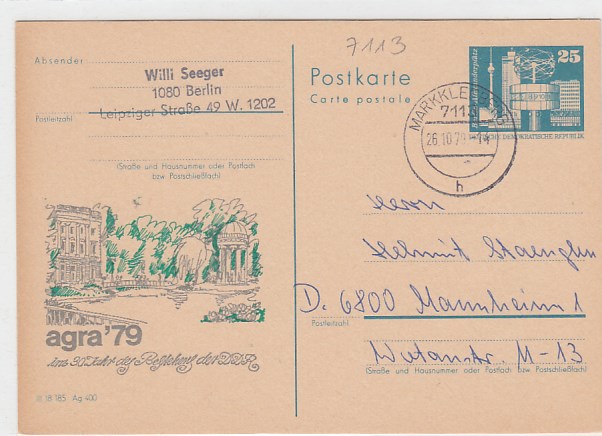 7113
Absender
Willi Seeger
1080 Berlin
Leipziger Straße 49 W. 1202
Postleitzahl
(Straße und Hausnummer oder Postfach
bzw. Postschließfach)
Postkarte
Carte postale
25
DEUTSCHE DEMOKRATISCHE REPUBLIK
7113
26.10.79
h
Herrn
Helmut
D. 6800 Mannheim 1
Postleitzahl
M-13
(Straße und Hausnummer oder Postfach bzw. Postschließfach)
agra'79
im 30. Jahr des Bestehens der DDR
III 18 185 Ag 400